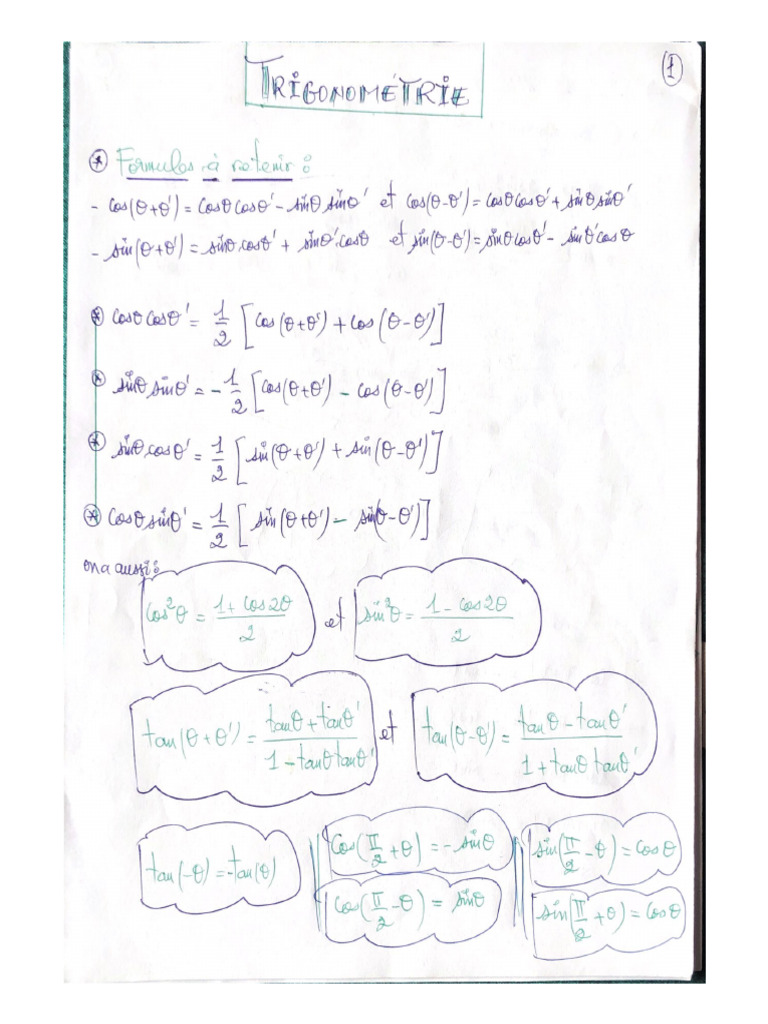 1
TRIGONOMÉTRIE
* Formules à retenir :
- cos(θ+θ') = cosθ cosθ' - sinθ sinθ' et cos(θ-θ') = cosθ cosθ' + sinθ sinθ'
- sin(θ+θ') = sinθ.cosθ' + sinθ'.cosθ et sin(θ-θ') = sinθ cosθ' - sinθ' cosθ
* cosθ cosθ' = 1/2 [cos(θ+θ') + cos(θ-θ')]
* sinθ sinθ' = -1/2 [cos(θ+θ') - cos(θ-θ')]
* sinθ.cosθ' = 1/2 [sin(θ+θ') + sin(θ-θ')]
* cosθ sinθ' = 1/2 [sin(θ+θ') - sin(θ-θ')]
on a aussi :
cos²θ = (1 + cos2θ)/2 et sin²θ = (1 - cos2θ)/2
tan(θ+θ') = (tanθ + tanθ')/(1 - tanθ tanθ') et tan(θ-θ') = (tanθ - tanθ')/(1 + tanθ tanθ')
tan(-θ) = -tan(θ) || cos(π/2 + θ) = -sinθ || sin(π/2 - θ) = cosθ
cos(π/2 - θ) = sinθ || sin(π/2 + θ) = cosθ